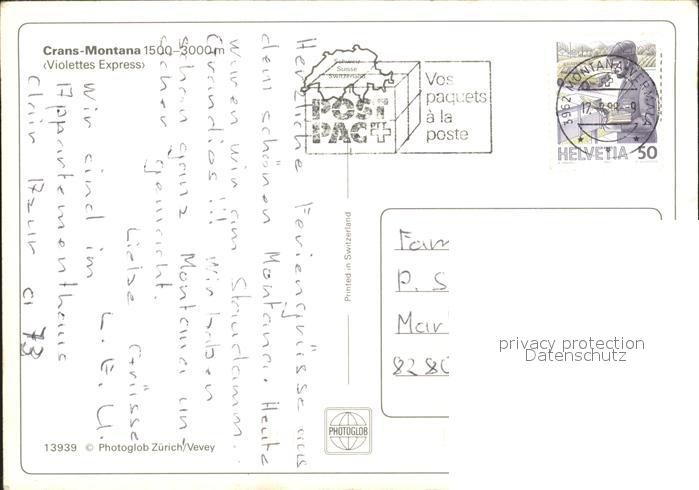 Crans-Montana 1500–3000m
‹Violettes Express›
Schweiz
Suisse
Switzerland
POST
PAC+
Vos
paquets
à la
poste
3962 MONTANA-VERMALA
HELVETIA 50
Herzliche Feriengrüsse aus
dem schönen Montana. Heute
waren wir am Staudamm.
Grandios!!! Wir haben
schon ganz Montana un-
sicher gemacht.
Liebe Grüsse
L. E. U.
Wir sind im
Appartementhaus
Clair Azur a 73
Printed in Switzerland
Fam
P. S
Mar
8280
privacy protection
Datenschutz
PHOTOGLOB
13939 © Photoglob Zürich/Vevey